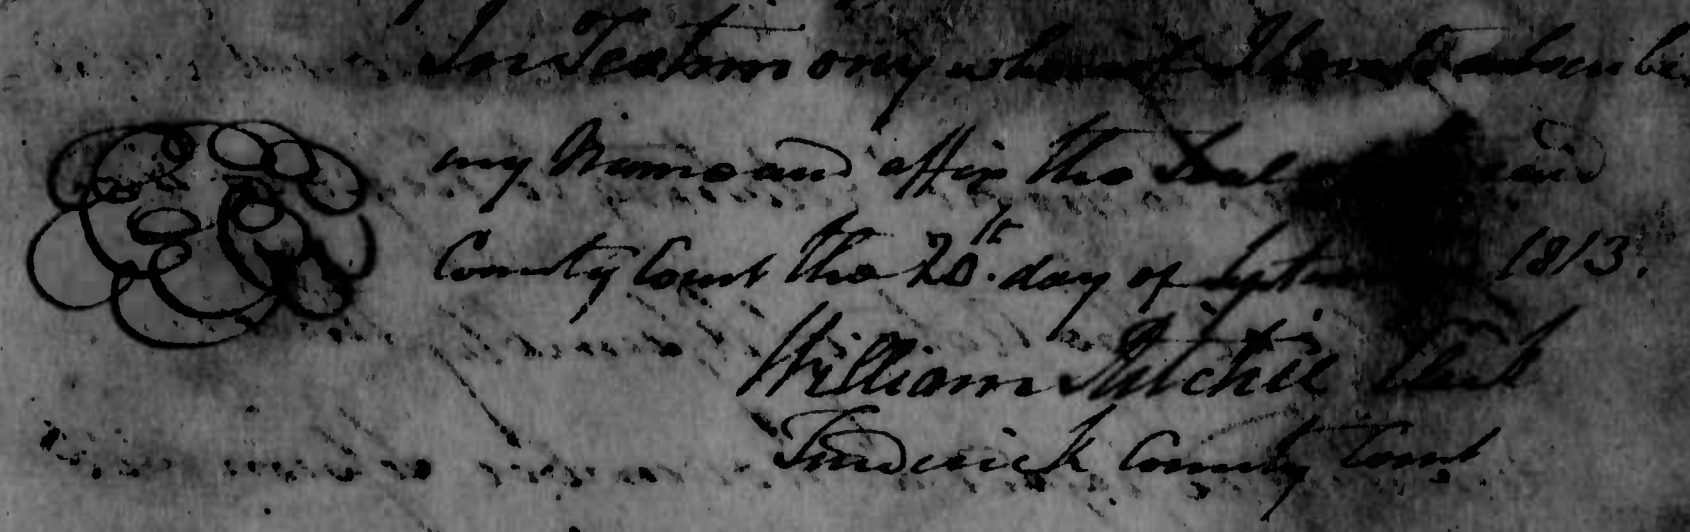 In Testimony whereof I hereto subscribe
my Name and affix the Seal and
County Court the 20th. day of September 1813.
William Ritchie Clerk
Frederick County Court